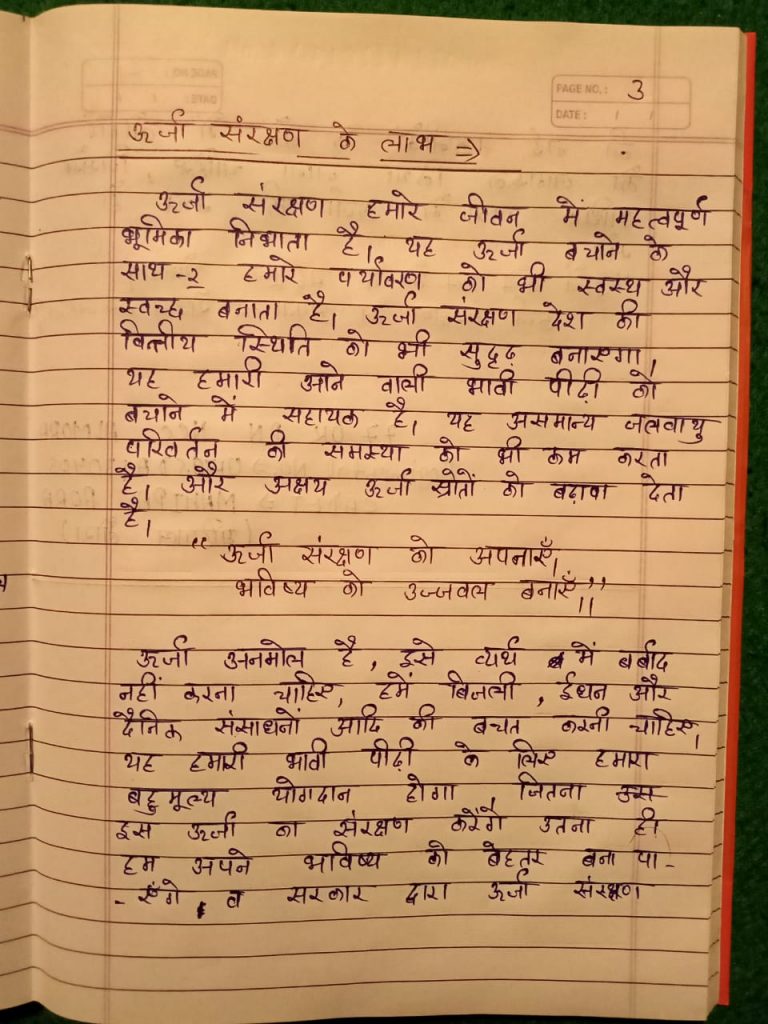 PAGE NO.: 3
DATE: / /
ऊर्जा संरक्षण के लाभ ⇒
ऊर्जा संरक्षण हमारे जीवन में महत्वपूर्ण
भूमिका निभाता है। यह ऊर्जा बचाने के
साथ-२ हमारे पर्यावरण को भी स्वस्थ और
स्वच्छ बनाता है। ऊर्जा संरक्षण देश की
वित्तीय स्थिति को भी सुदृढ़ बनाएगा।
यह हमारी आने वाली भावी पीढ़ी को
बचाने में सहायक है। यह असमान्य जलवायु
परिवर्तन की समस्या को भी कम करता
है। और अक्षय ऊर्जा स्रोतों को बढ़ावा देता
है।
“ऊर्जा संरक्षण को अपनाएँ।
भविष्य को उज्जवल बनाएँ”॥
ऊर्जा अनमोल है, इसे व्यर्थ में बर्बाद
नहीं करना चाहिए, हमें बिजली, ईंधन और
दैनिक संसाधनों आदि की बचत करनी चाहिए।
यह हमारी भावी पीढ़ी के लिए हमारा
बहुमूल्य योगदान होगा, जितना
इस ऊर्जा का संरक्षण करेंगे उतना ही।
हम अपने भविष्य को बेहतर बना पा-
-एंगे, व सरकार द्वारा ऊर्जा संरक्षण